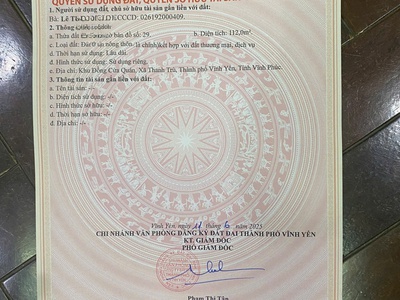 QUYỀN SỬ DỤNG ĐẤT, QUYỀN SỞ HỮU TÀI SẢN
1. Người sử dụng đất, chủ sở hữu tài sản gắn liền với đất:
Bà: Lê CCCD: 026192000409.
2. Thông
a. Thửa đất bản đồ số: 29. b. Diện tích: 112,0m²
c. Loại đất: Đất ở tại nông thôn kết hợp với đất thương mại, dịch vụ
d. Thời hạn sử dụng: Lâu dài.
đ. Hình thức sử dụng: Sử dụng riêng.
e. Địa chỉ: Khu Đồng Cửa Quán, Xã Thanh Trù, Thành phố Vĩnh Yên, Tỉnh Vĩnh Phúc.
3. Thông tin tài sản gắn liền với đất:
a. Tên tài sản: -/-
b. Diện tích sử dụng: -/-
c. Hình thức sở hữu: -/-
d. Thời hạn sở hữu: -/-
đ. Địa chỉ: -/-
Vĩnh Yên, 6 năm 2025
CHI NHÁNH VĂN PHÒNG ĐĂNG KÝ ĐẤT ĐAI THÀNH PHỐ VĨNH YÊN
KT. GIÁM ĐỐC
PHÓ GIÁM ĐỐC
Phạm Thị Tân